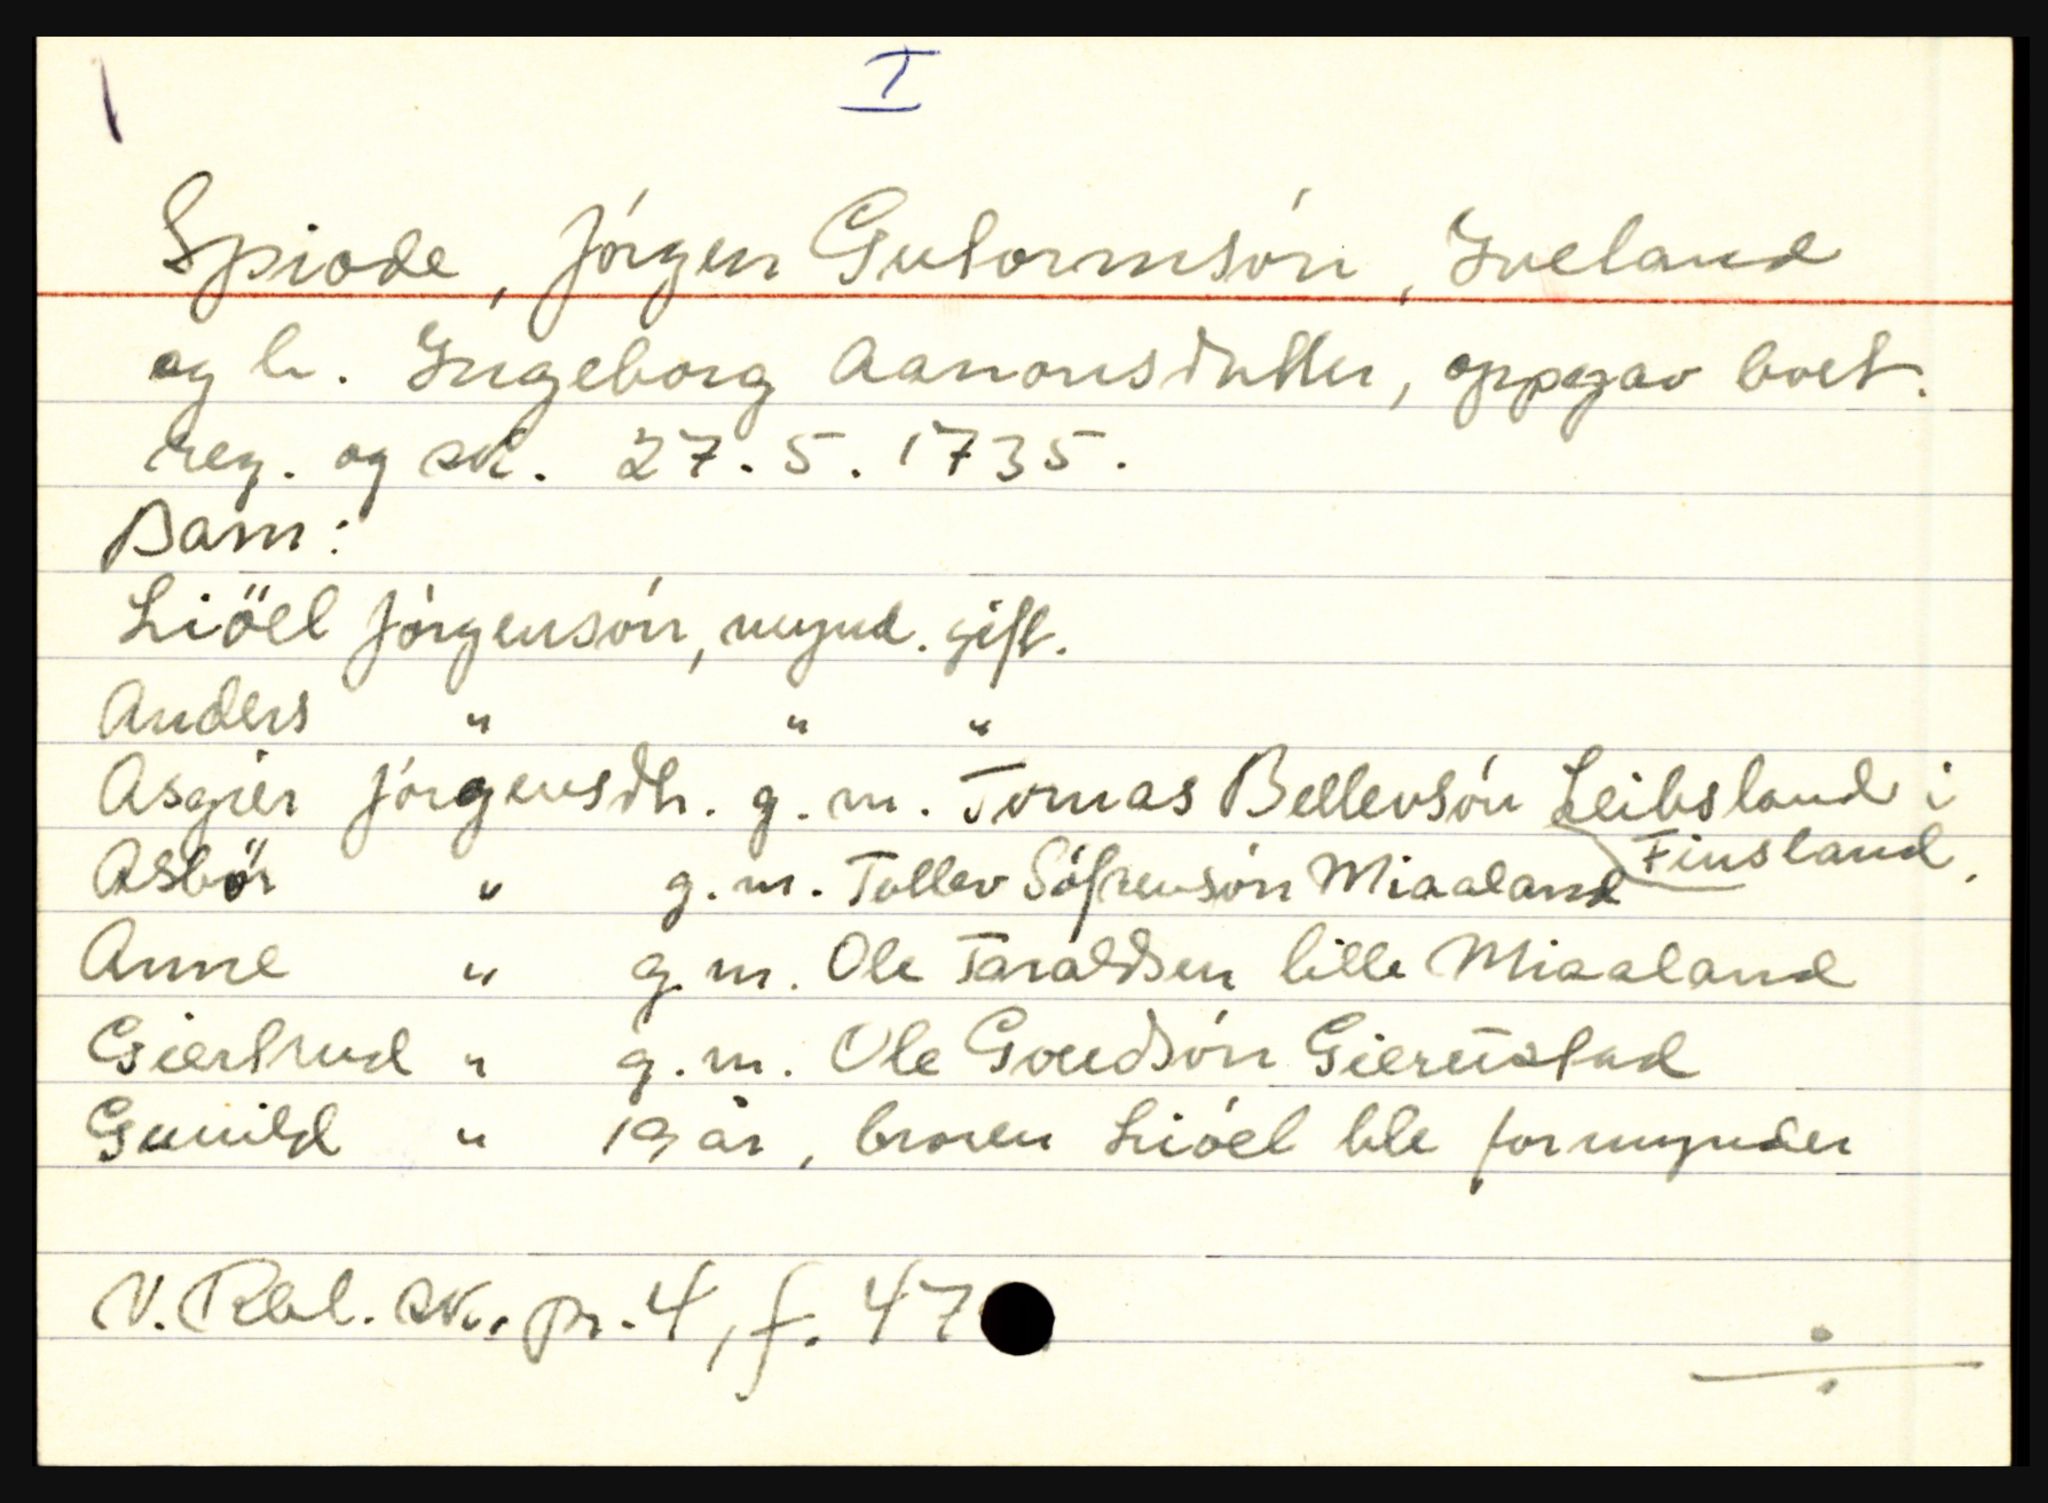 I
Spiode, Jórgen Gutormsón, Iveland
og h. Ingeborg Aanonsdatter, oppgav boet.
reg. og sk. 27.5.1735.
Barn:
Liöel Jórgensón, mynd. gift.
Anders " " "
Asgier Jórgensdtr. g.m. Tomas Bellevsón Leibsland i
Finsland.
Asbör " g.m. Tollev Sófrensón Miaaland
Anne " g.m. Ole Taraldsen lille Miaaland
Giertrud " g.m. Ole Goudsón Gierustad
Gunild " 19 år, broren Lióel ble formynder
V. Rbl. sk. pr. 4, f. 47